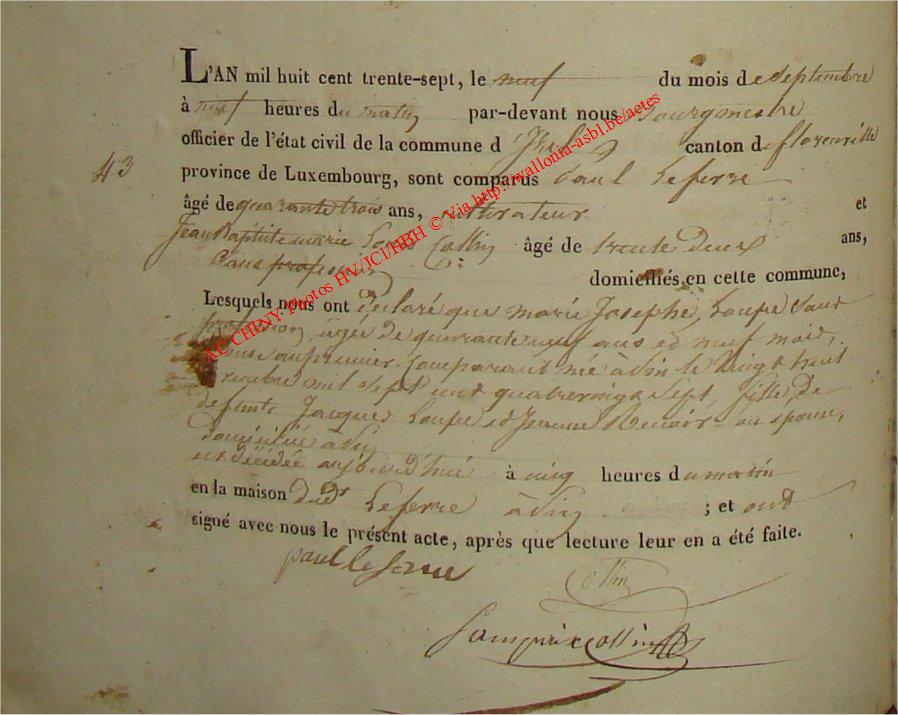 L'AN mil huit cent trente-sept, le neuf du mois de Septembre
à neuf heures du matin par-devant nous Bourgmestre
officier de l'état civil de la commune d canton de florenville
43
province de Luxembourg, sont comparus paul Leferre
âgé de quarante trois ans, et
Jean Baptiste marie Louis Collin âgé de trente Deux ans,
Sans profession domiciliés en cette commune,
Lesquels nous ont Declaré que marie Josephe Loupe Sans
profession, agée de quarante neuf ans et neuf mois,
au premier Comparant née à le vingt huit
mil Sept cent quatrevingt Sept, fille de
defunts Jacques Loupe et Jeanne Renoir
domiciliée à
est décédée aujourd'hui à cinq heures du matin
en la maison dudt Leferre à ; et ont
signé avec nous le présent acte, après que lecture leur en a été faite.
paul leferre
Collin
Collin
AC CHINY Photos HV/JCI/HBH © Via http://wallonia-asbl.be/actes